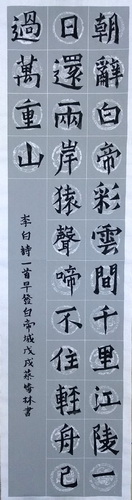 朝辭白帝彩雲間千里江陵一
日還兩岸猿聲啼不住輕舟已
過萬重山
李白詩一首早登白帝城戊戌林書